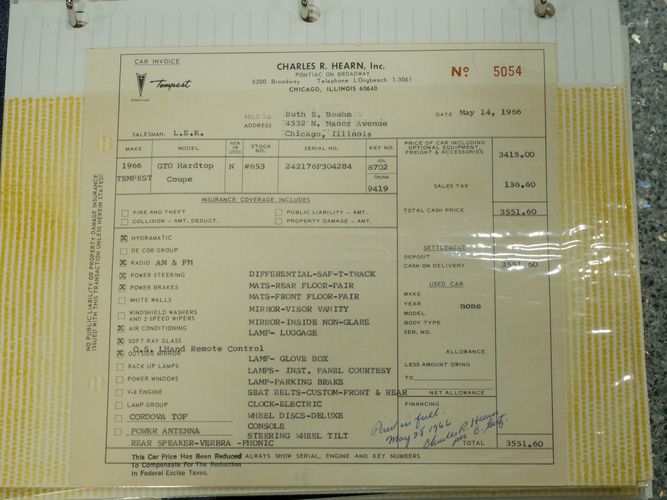 CAR INVOICE
Tempest
PONTIAC
CHARLES R. HEARN, Inc.
PONTIAC ON BROADWAY
5300 Broadway Telephone LOngbeach 1-3061
CHICAGO, ILLINOIS 60640
No 5054
SOLD TO: Ruth E. Boehm
DATE May 14, 1966
ADDRESS 4532 N. Manor Avenue
SALESMAN: L.E.K. Chicago, Illinois
MAKE MODEL NEW OR USED STOCK NO. SERIAL NO. KEY NO.
PRICE OF CAR INCLUDING OPTIONAL EQUIPMENT, FREIGHT & ACCESSORIES 3415.00
1966 GTO Hardtop N #653 242176P304284 IGN. 8702
TEMPEST Coupe TRUNK 9419
SALES TAX 136.60
INSURANCE COVERAGE INCLUDES
TOTAL CASH PRICE 3551.60
FIRE AND THEFT PUBLIC LIABILITY - AMT.
COLLISION - AMT. DEDUCT. PROPERTY DAMAGE - AMT.
NO PUBLIC LIABILITY OR PROPERTY DAMAGE INSURANCE
ISSUED WITH THIS TRANSACTION UNLESS HEREIN STATED!
X HYDRAMATIC
DECOR GROUP
X RADIO AM & FM
X POWER STEERING
X POWER BRAKES
WHITE WALLS
WINDSHIELD WASHERS
AND 2 SPEED WIPERS
X AIR CONDITIONING
X SOFT RAY GLASS
O.S. LHand Remote Control
X OUTSIDE MIRROR
BACK UP LAMPS
POWER WINDOWS
V-8 ENGINE
LAMP GROUP
CORDOVA TOP
POWER ANTENNA
REAR SPEAKER-VERBRA -PHONIC
DIFFERENTIAL-SAF-T-TRACK
MATS-REAR FLOOR-PAIR
MATS-FRONT FLOOR-PAIR
MIRROR-VISOR VANITY
MIRROR-INSIDE NON-GLARE
LAMP- LUGGAGE
LAMP- GLOVE BOX
LAMPS- INST. PANEL COURTESY
LAMP-PARKING BRAKE
SEAT BELTS-CUSTOM-FRONT & REAR
CLOCK-ELECTRIC
WHEEL DISCS-DELUXE
CONSOLE
STEERING WHEEL TILT
SETTLEMENT
DEPOSIT
CASH ON DELIVERY 3551.60
USED CAR
MAKE
YEAR none
MODEL
BODY TYPE
SER. NO.
ALLOWANCE
LESS AMOUNT OWING
TO
NET ALLOWANCE
FINANCING
Paid in full
May 28 1966
Charles R Hearn
TOTAL 3551.60
This Car Price Has Been Reduced ALWAYS SHOW SERIAL, ENGINE AND KEY NUMBERS
To Compensate For The Reduction
in Federal Excise Taxes.